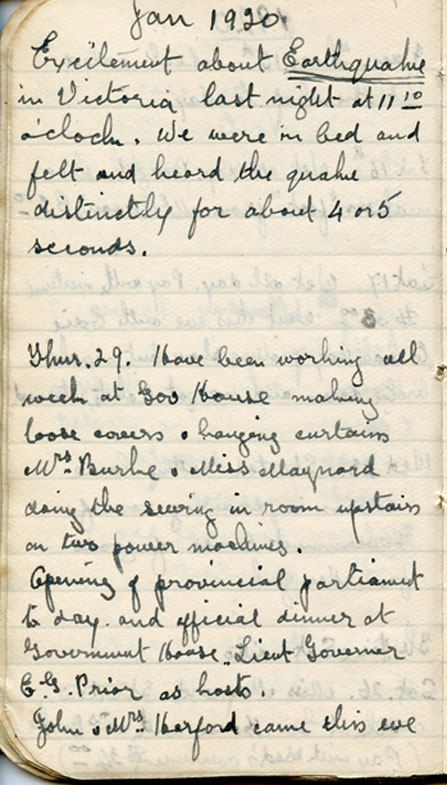 Jan 1920.
Excitement about Earthquake
in Victoria last night at 11 10
o'clock. We were in bed and
felt and heard the quake
distinctly for about 4 or 5
seconds.
Thur. 29. Have been working all
week at Gov House making
loose covers & hanging curtains
Mrs. Burke & Miss Maynard
doing the sewing in room upstairs
on two power machines.
Opening of provincial parliament
to day. and official dinner at
Government House. Lieut Governer
E.G. Prior as hosts.
John & Mrs. Harford came this eve